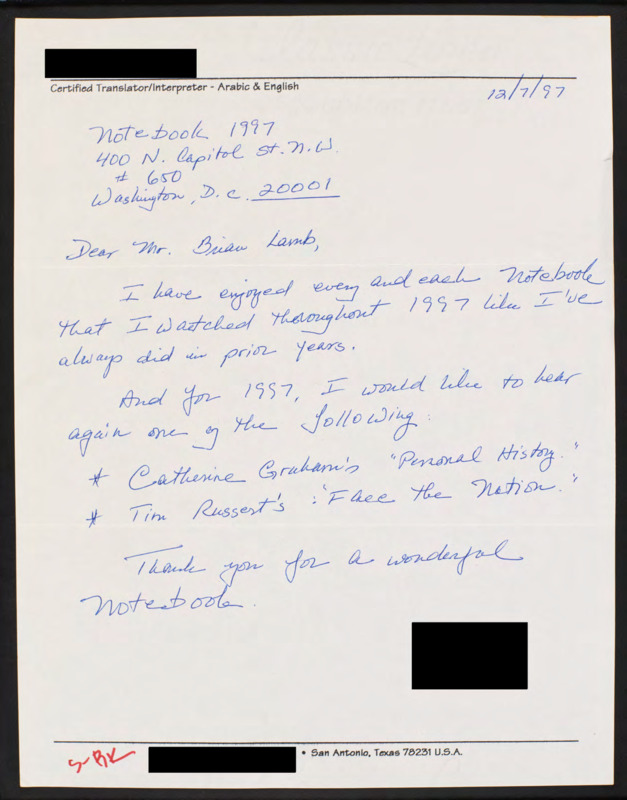 Certified Translator/Interpreter - Arabic & English
12/7/97
Notebook 1997
400 N. Capitol St. N.W.
# 650
Washington, D.C. 20001
Dear Mr. Brian Lamb,
I have enjoyed every and each Notebook
that I watched thoroughout 1997 like I've
always did in prior years.
And for 1997, I would like to hear
again one of the following:
* Catherine Graham's "Personal History."
* Tim Russert's : "Face the Nation."
Thank you for a wonderful
Notebook.
• San Antonio, Texas 78231 U.S.A.